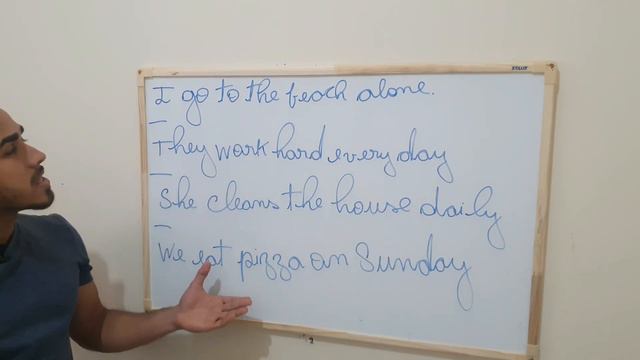 I go to the beach alone.
They work hard every day
She cleans the house daily
We eat pizza on Sunday